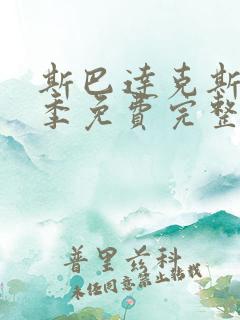 斯巴達克斯
季免費完整
普里兹科
未经同意禁止转载